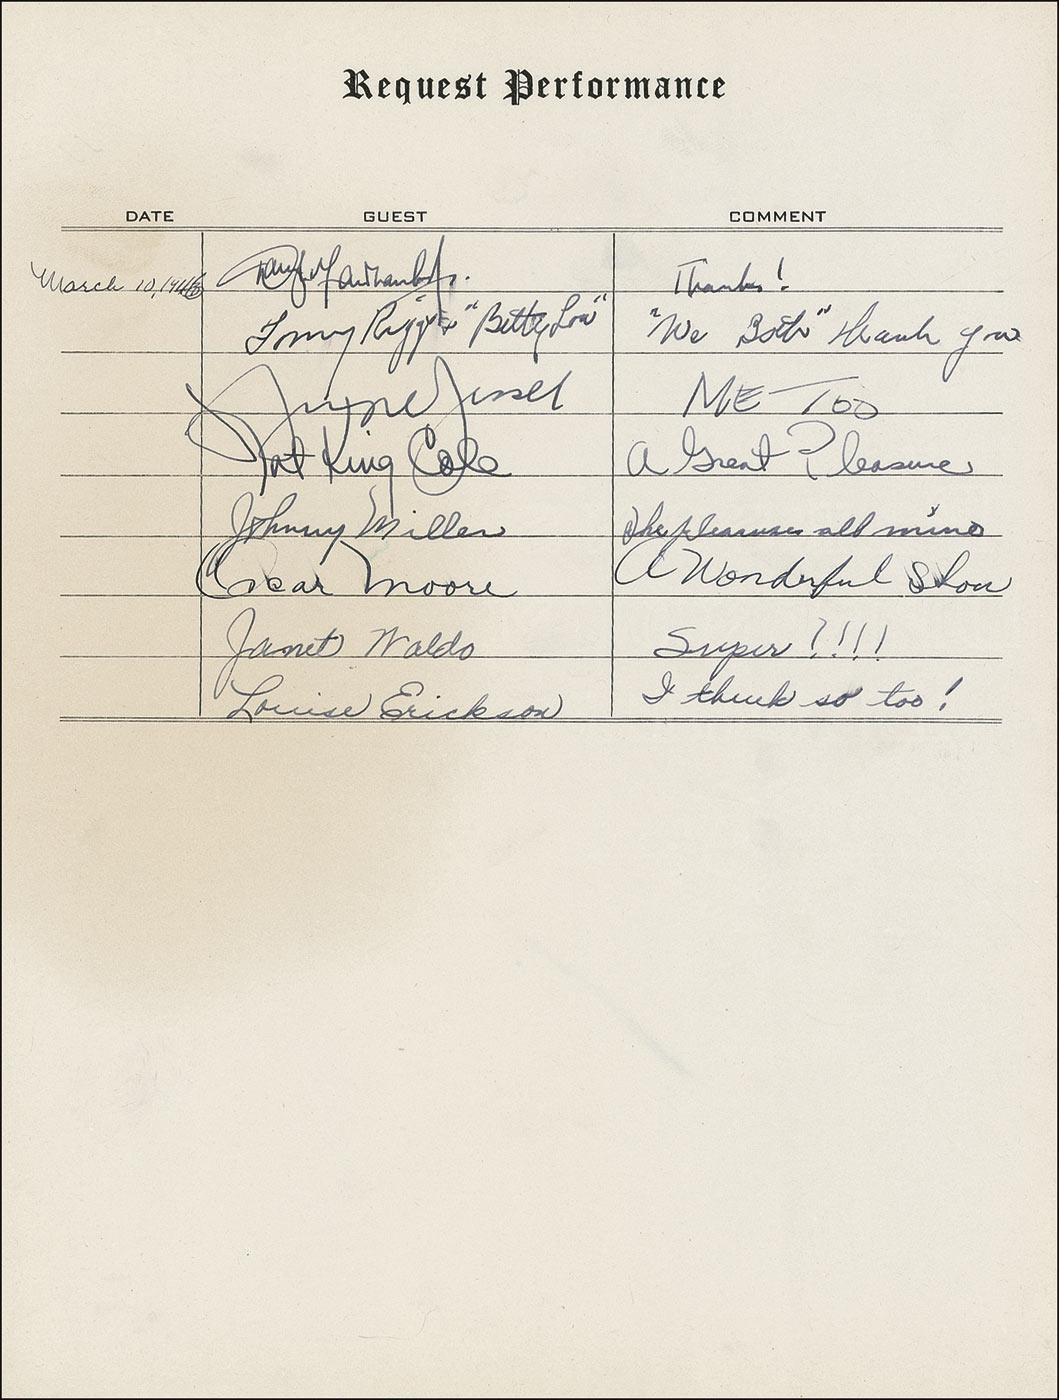 Request Performance
DATE GUEST COMMENT
March 10, 1946 Doug Fairbanks Jr. Thanks!
Tommy Riggs & "Betty Lou" "We Both" thank you
Jessel ME TOO
Nat King Cole A Great Pleasure
Johnny Miller The pleasures all mine
Oscar Moore A Wonderful Show
Janet Waldo Super!!!!
Louise Erickson I think so too!